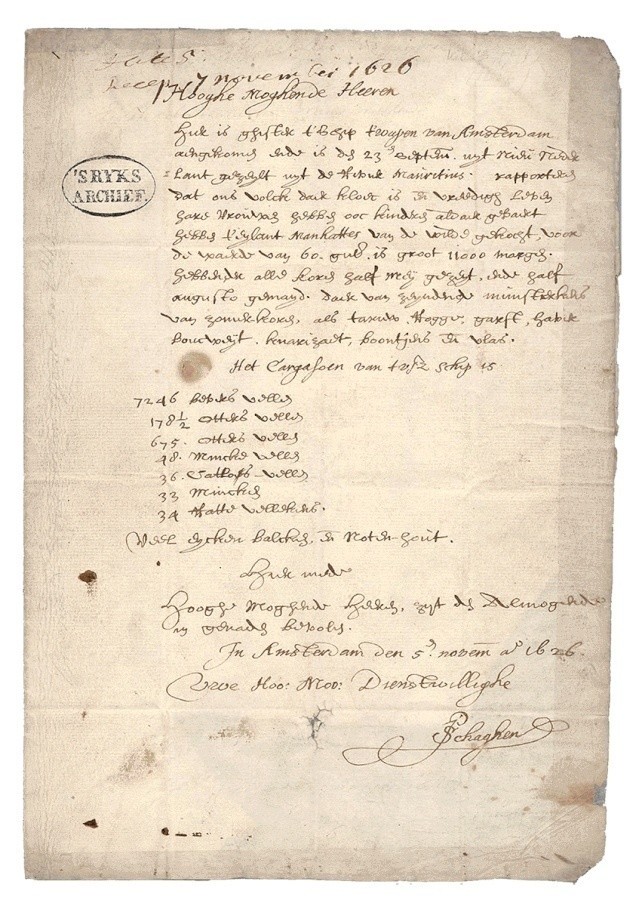 Recep. 7 november 1626
Hooghe Moghende Heeren
'S RYKS
ARCHIEF.
Hier is ghister t'Schip t'wapen van Amsterdam
aengekomen ende is den 23en Septem. uyt Nieu Neder
lant gezeylt uyt de Rivier Mauritius. rapporteren
dat ons volck daer kloec is en vreedigh leven
hare Vrouwen hebben ooc kinderen aldaer gebaert
hebben t'Eylant Manhattes van de wilde gekocht, voor
de waerde van 60. guld. is groot 11000 morgen.
hebbende alle koren half Mey gezeyt, ende half
augusto gemayd. daer van zeynden munsterkens
van zomerkoren, als taruw, Rogge, garst, haver
boucweyt, knarizaet, boontjens en vlas.
Het Cargasoen van tsz Schip is
7246 bevers vellen
178½ otters vellen
675. otters vellen
48. Mincke vellen
36. Catloes vellen
33 Mincken
34 Ratte vellekens.
Veel eycken balcken, en Noten-hout.
Hier mede
Hooghe Moghende Heeren, zyt den Almogende
in genaden bevolen.
In Amsterdam den 5en novem ao 1626.
Uwe Hoo: Moo: Dienstwillighe
P Schaghen